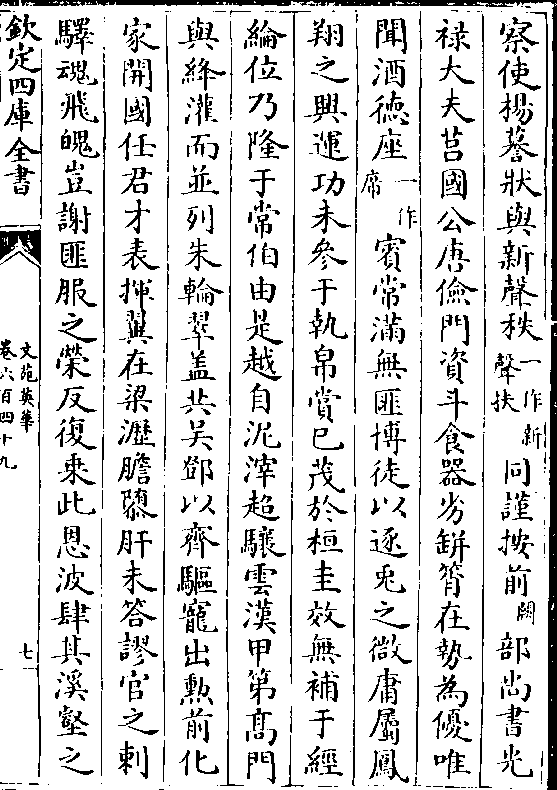 察使揚譽狀與新聲秩一作新聲扶同謹按前闕部尚書光
禄大夫莒國公唐儉門資斗食器劣缾筲在執為優唯
聞酒德座一作席賓常滿無匪博徒以逐兎之微庸屬鳳
翔之興運功未參于執帛賞已茂於桓圭效無補于經
綸位乃隆于常伯由是越自泥滓超驤雲漢甲第髙門
與絳灌而並列朱輪翠盖共吴鄧以齊驅寵出勲前化
家開國任君才表揮翼在梁瀝膽隳肝未答謬官之刺
驛魂飛魄豈謝匪服之榮反復乗此恩波肆其溪壑之
欽定四庫全書
文苑英華
卷六百四十九
七